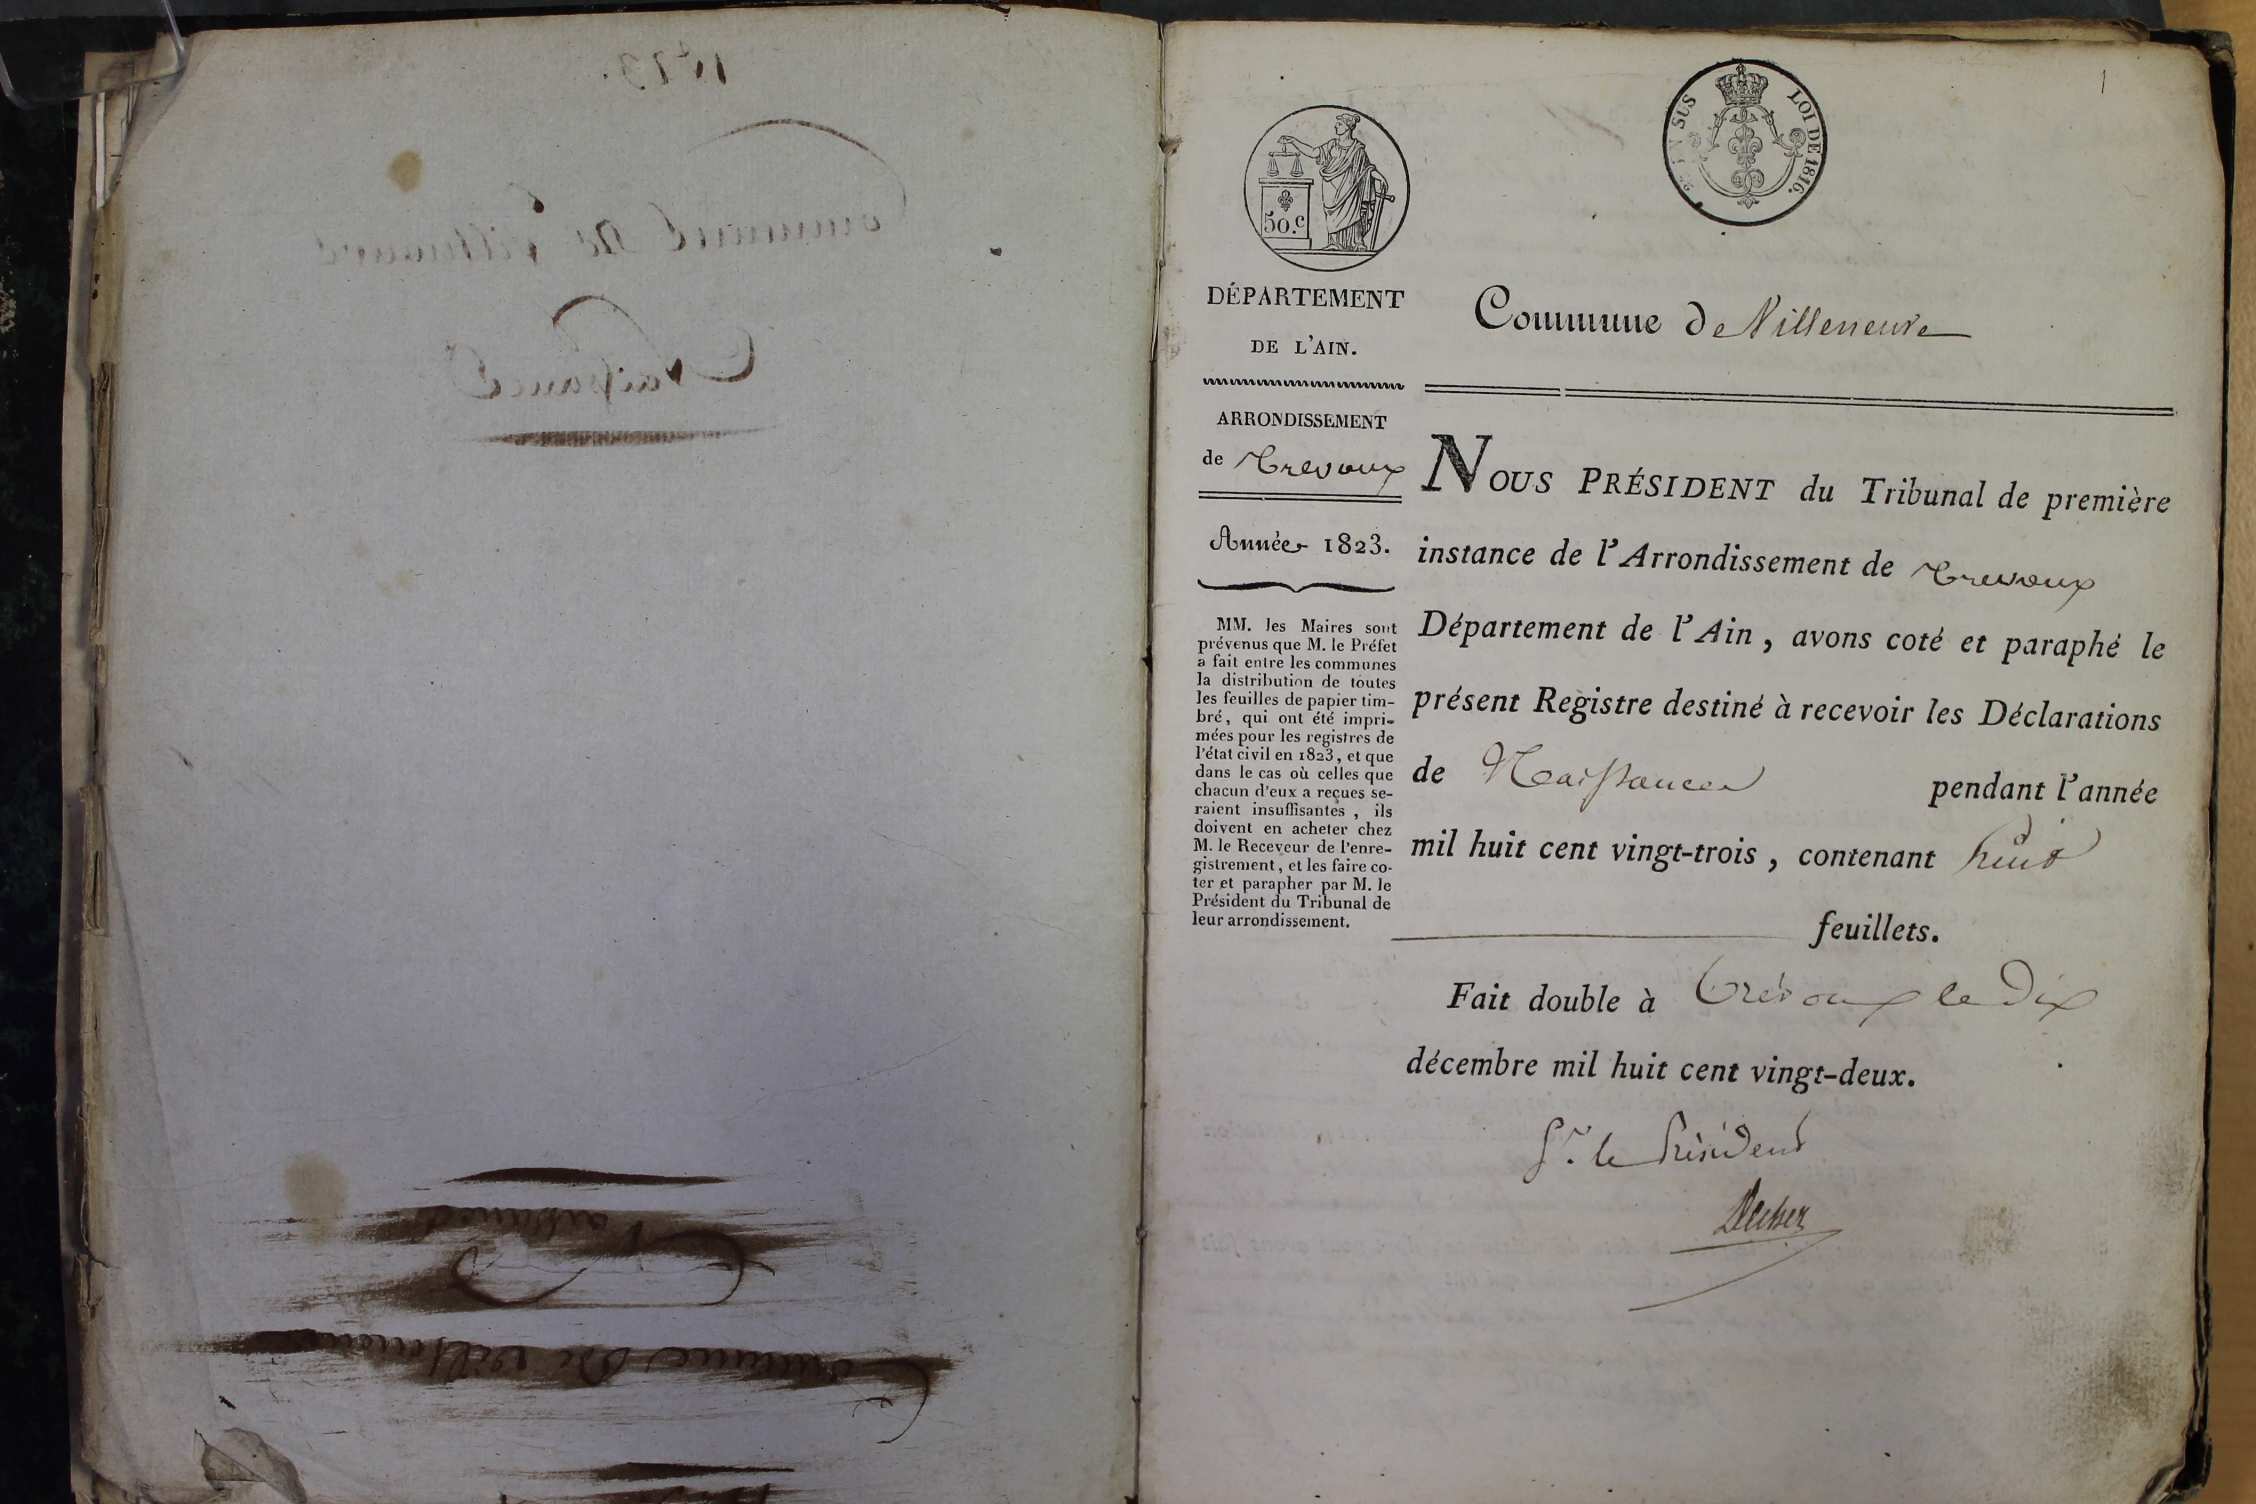 1823.
Commune de Villeneuve
Naissance
Naissance
Commune de Villeneuve
1
EN SUS LOI DE 1816.
50.c
DÉPARTEMENT
DE L'AIN.
ARRONDISSEMENT
de Trevoux
Année 1823.
MM. les Maires sont
prévenus que M. le Préfet
a fait entre les communes
la distribution de toutes
les feuilles de papier tim-
bré, qui ont été impri-
mées pour les registres de
l'état civil en 1823, et que
dans le cas où celles que
chacun d'eux a reçues se-
raient insuffisantes, ils
doivent en acheter chez
M. le Receveur de l'enre-
gistrement, et les faire co-
ter et parapher par M. le
Président du Tribunal de
leur arrondissement.
Commune de Villeneuve
NOUS PRÉSIDENT du Tribunal de première
instance de l'Arrondissement de Trevoux
Département de l'Ain, avons coté et paraphé le
présent Registre destiné à recevoir les Déclarations
de Naissances pendant l'année
mil huit cent vingt-trois, contenant huit
feuillets.
Fait double à Trévoux le dix
décembre mil huit cent vingt-deux.
Pr. le Président